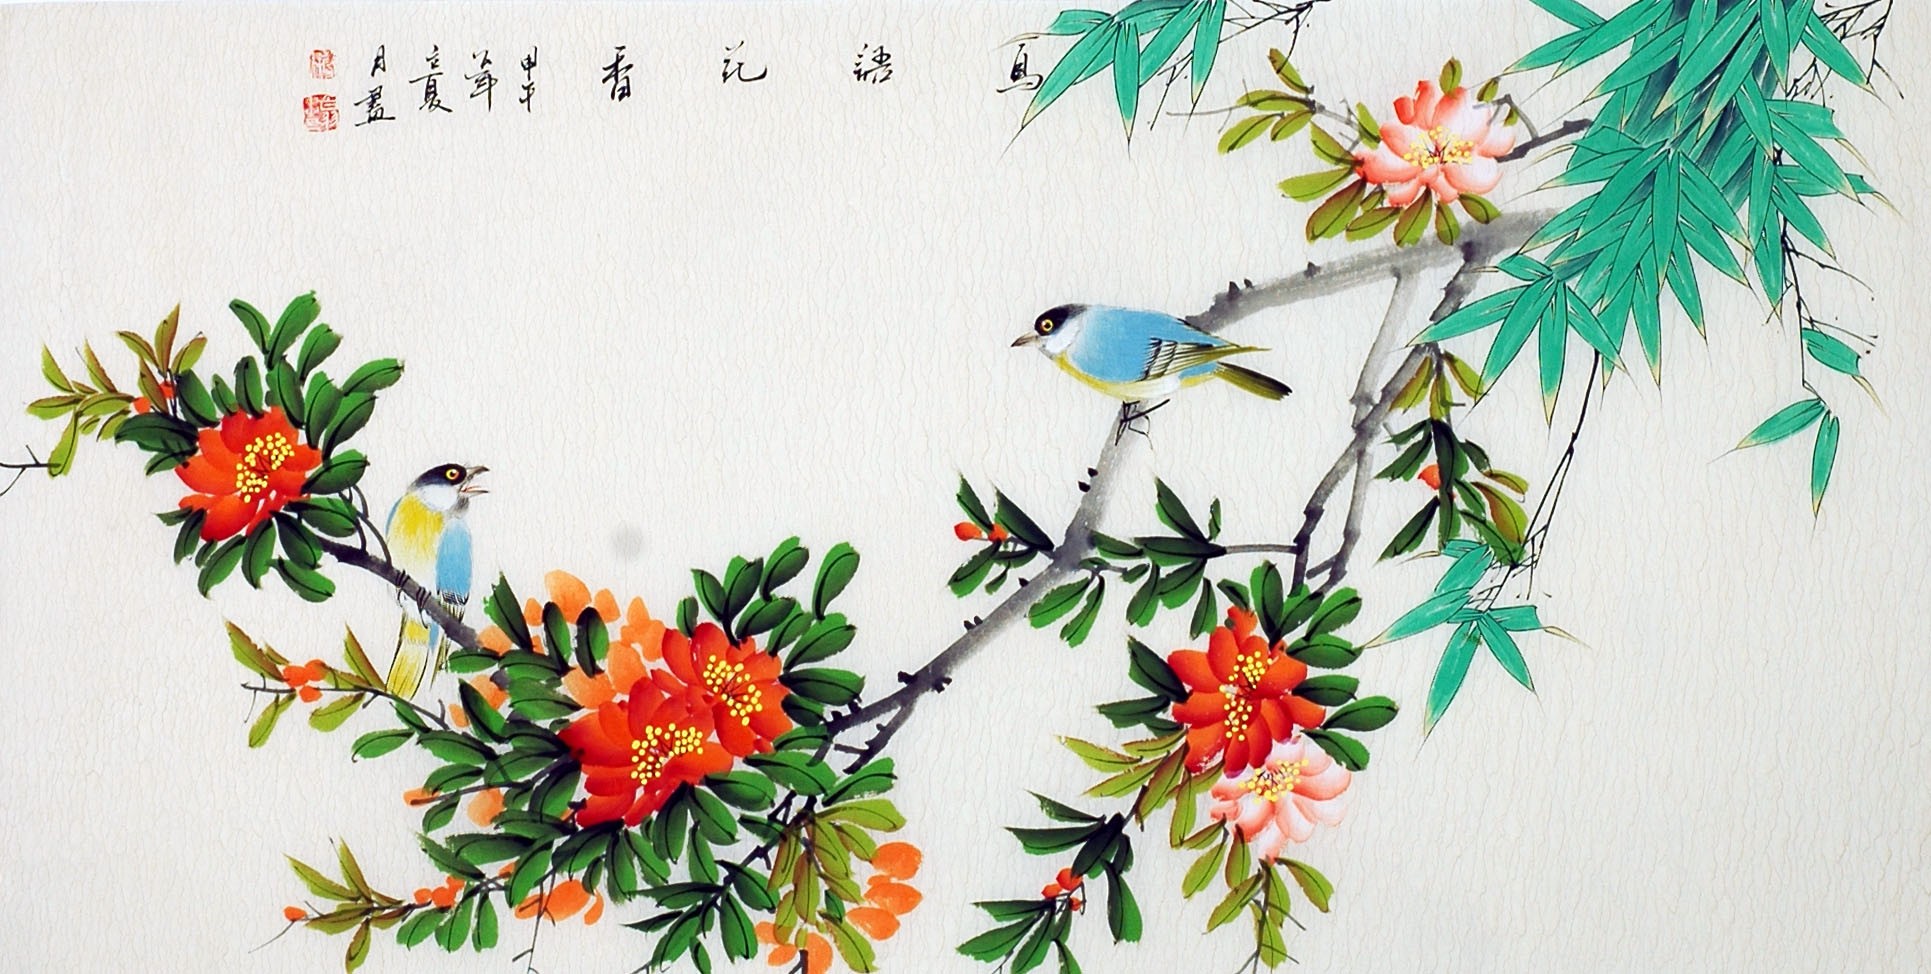 鳥語花香
甲午
年
立夏
月畫